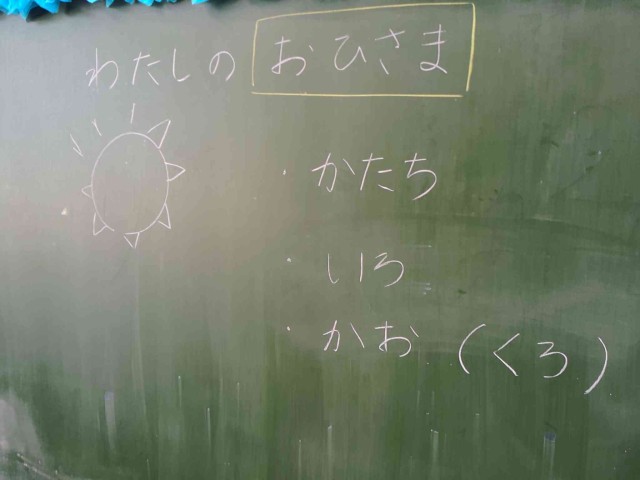 わたしの おひさま
・かたち
・いろ
・かお(くろ)